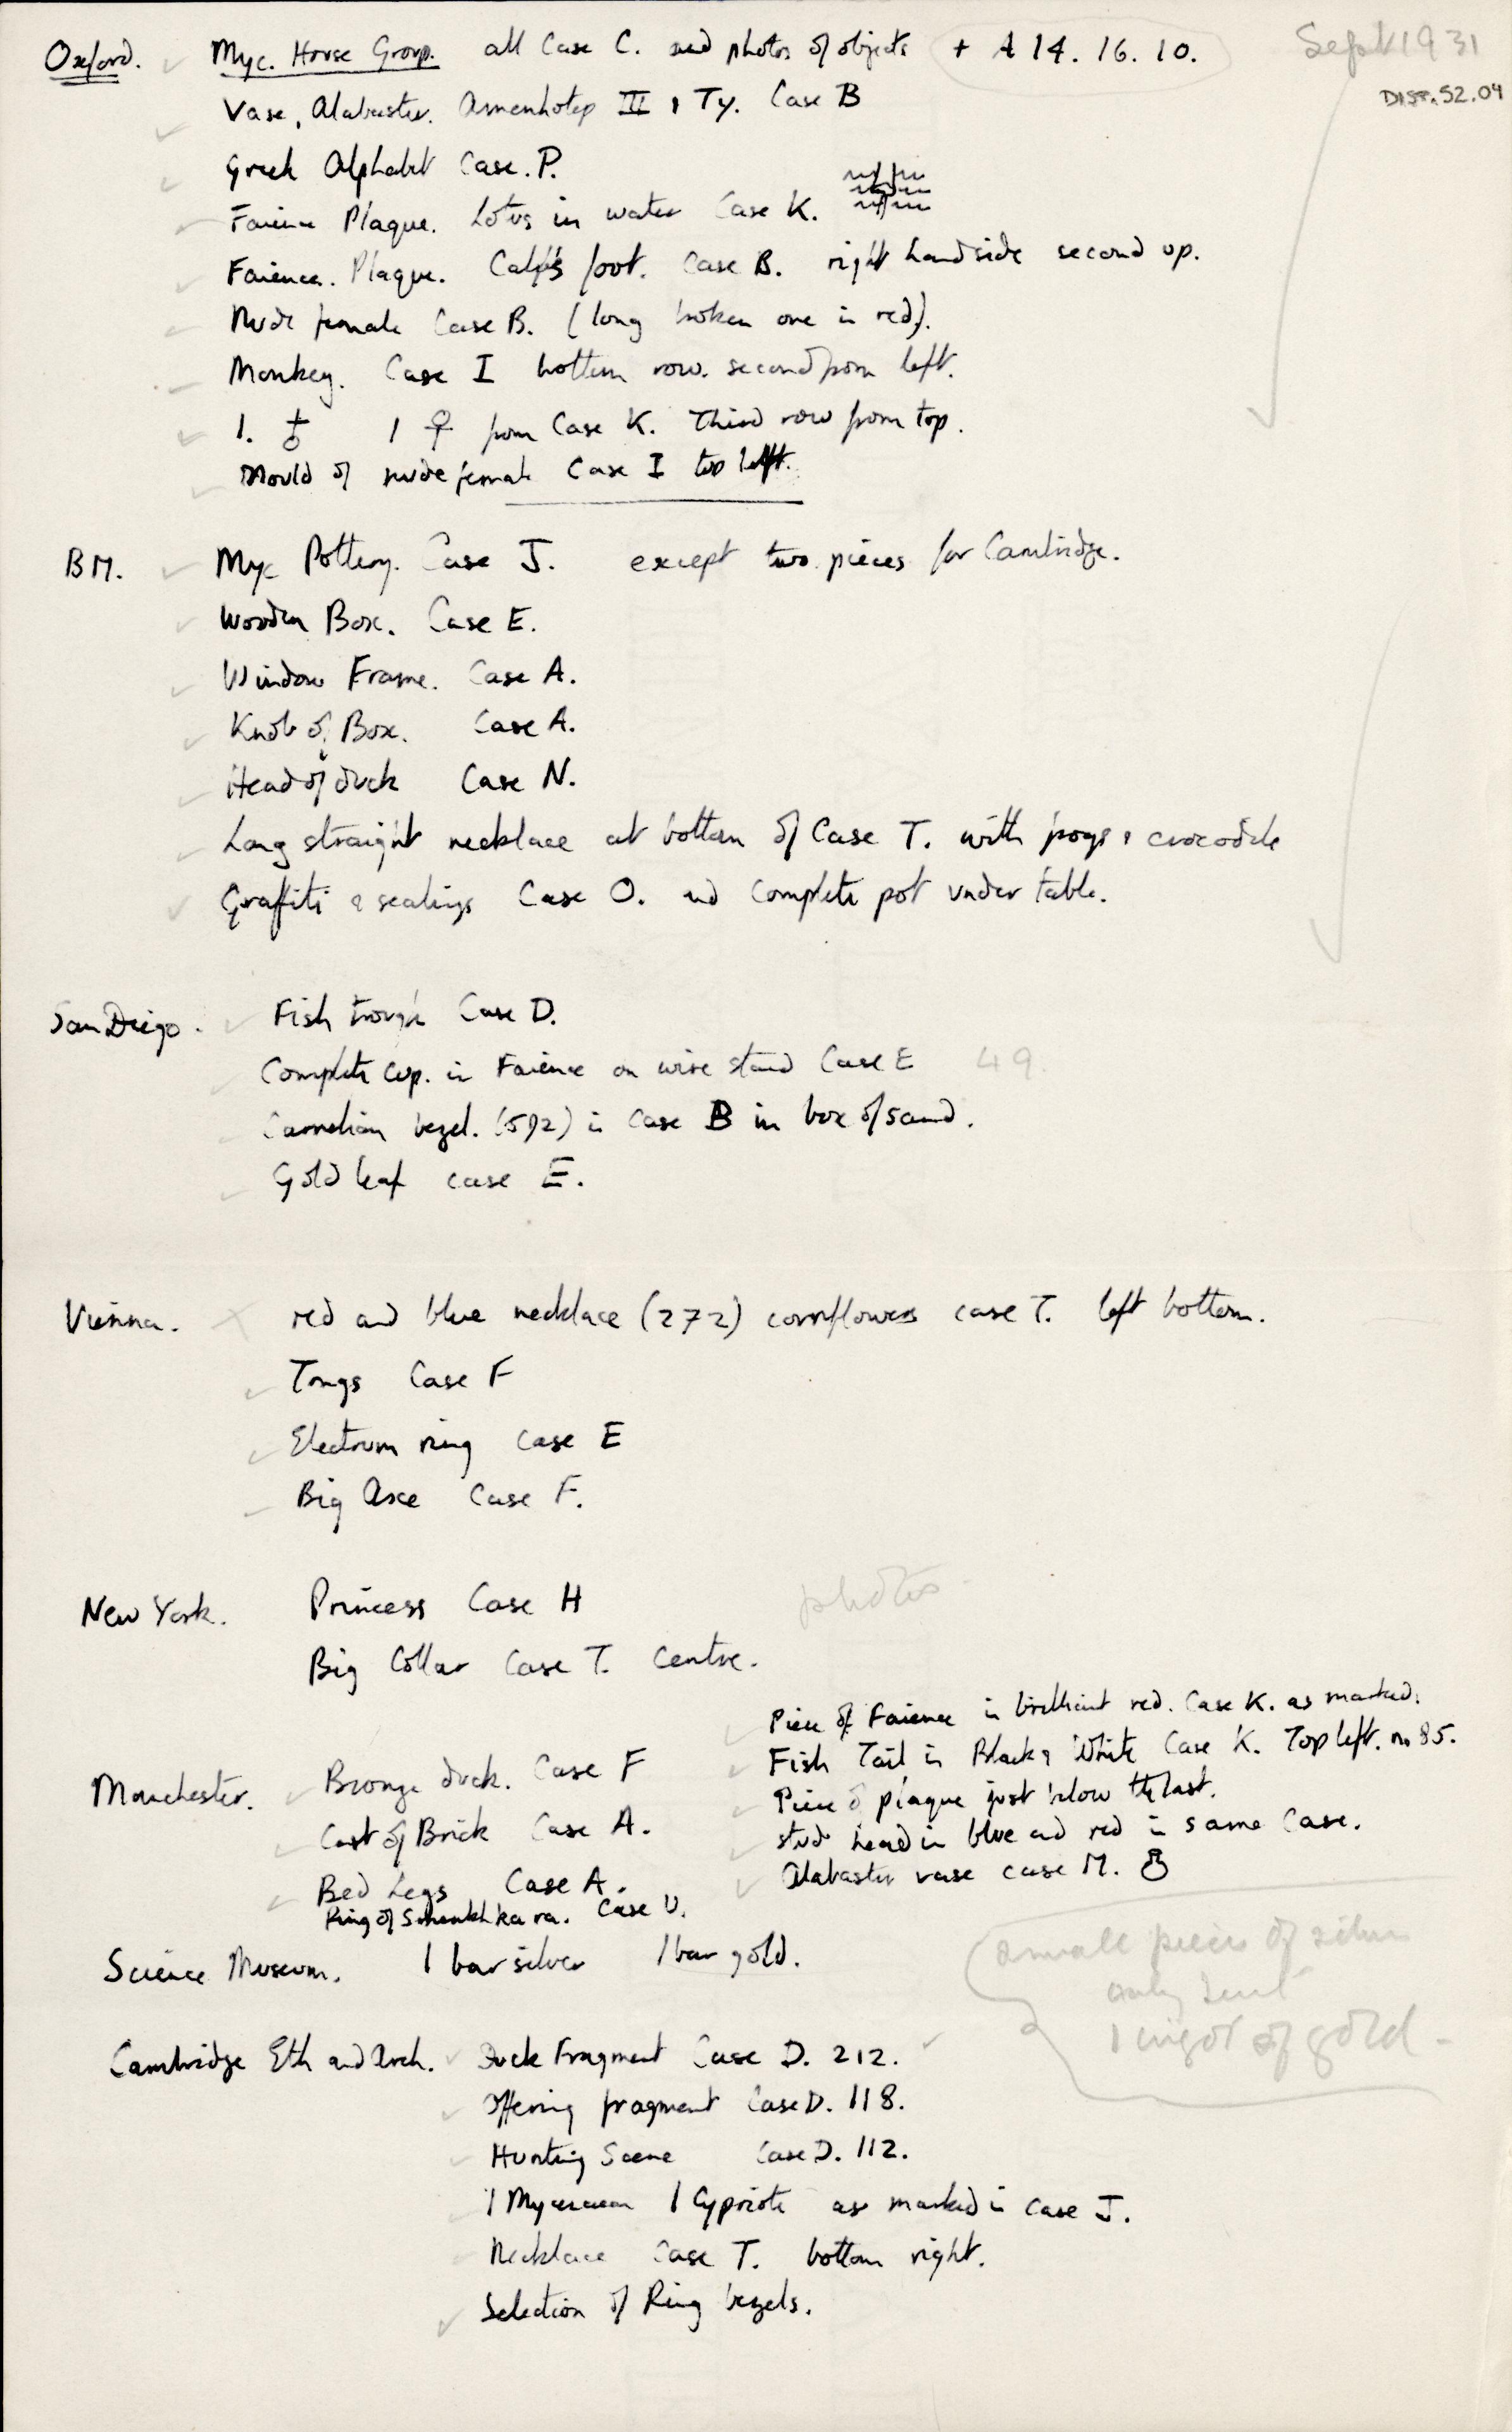 Sept 1931
DIST.52.09
Oxford. Myc. House Group. all Case C. and photos of objects + A 14. 16. 10.
Vase, Alabaster. Amenhotep III & Ty. Case B
Greek Alphabet Case. P.
Faience Plaque. Lotus in water Case K.
Faience. Plaque. Calf's foot. Case B. right hand side second up.
Nude female Case B. (long broken one in red).
Monkey. Case I bottom row. second from left.
1. ♁ 1 ♀ from Case K. Third row from top.
Mould of nude female Case I top left.
BM. Myc Pottery. Case J. except two pieces for Cambridge.
Wooden Box. Case E.
Window Frame. Case A.
Knob of Box. Case A.
Head of duck Case N.
Long straight necklace at bottom of Case T. with frogs & crocodile
Graffiti & sealings Case O. and complete pot under table.
San Diego. Fish trough Case D.
Complete cup. in Faience on wire stand Case E 49.
Carnelian bezel. (592) in Case B in box of sand.
Gold leaf case E.
Vienna. red and blue necklace (272) cornflowers case T. left bottom.
Tongs Case F
Electrum ring Case E
Big Axe Case F.
New York. Princess Case H photos
Big Collar Case T. Centre.
Manchester. Bronze duck. Case F
Cast of Brick Case A.
Bed Legs Case A.
Ring of Smenkhkara. Case U.
Piece of Faience in brilliant red. Case K. as marked.
Fish Tail in Black & White Case K. Top left. no 85.
Piece of plaque just below the last.
stud head in blue and red in same Case.
Alabaster vase case M.
Science Museum. 1 bar silver 1 bar gold.
small pieces of silver
only sent
1 ingot of gold.
Cambridge Eth and Arch. Duck Fragment Case D. 212.
Offering fragment Case D. 118.
Hunting Scene Case D. 112.
1 Mycenaean 1 Cypriote as marked in Case J.
Necklace Case T. bottom right.
Selection of Ring bezels.